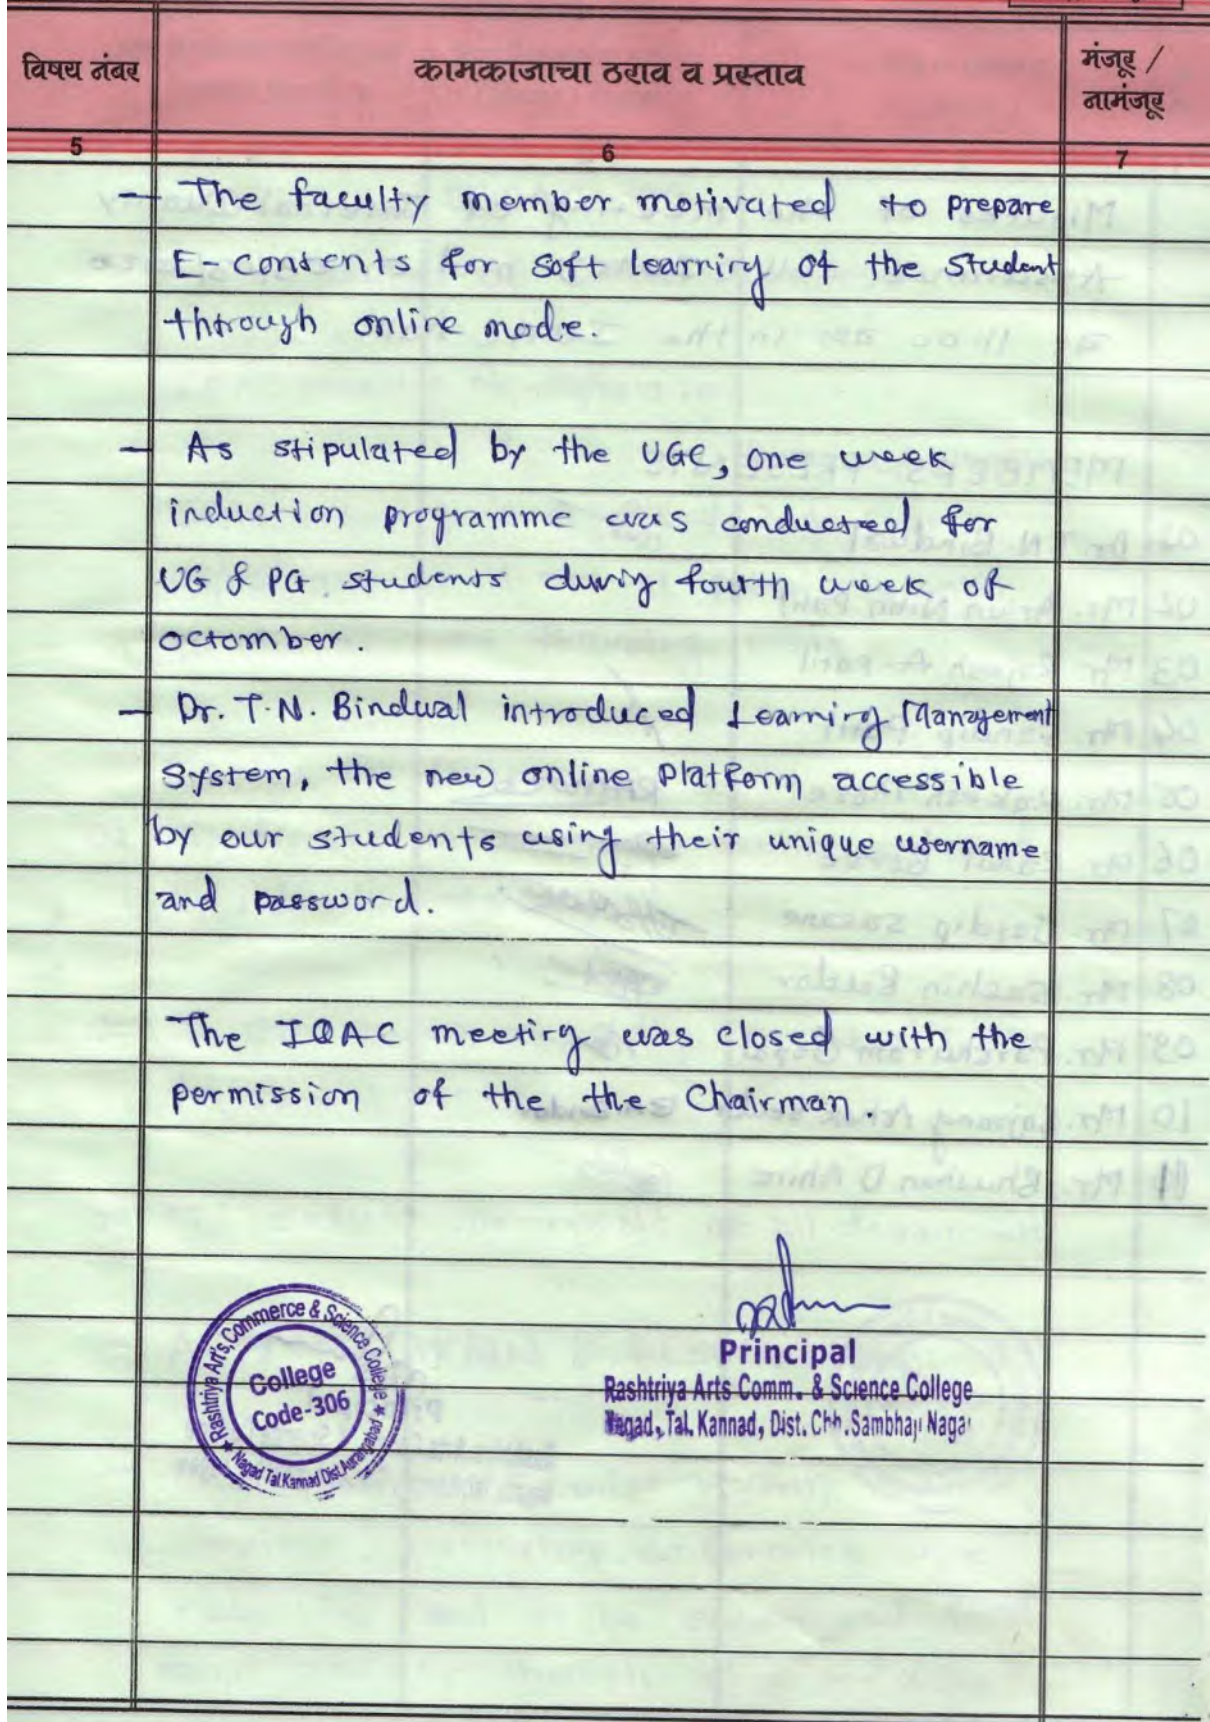 विषय नंबर
कामकाजाचा ठराव व प्रस्ताव
मंजूर /
नामंजूर
5
6
7
- The faculty member motivated to prepare
E-contents for soft learning of the student
through online mode.
- As stipulated by the UGC, one week
induction programme was conducted for
UG & PG students during fourth week of
octomber.
- Dr. T.N. Bindwal introduced Learning Management
System, the new online Platform accessible
by our students using their unique username
and password.
The IQAC meeting was closed with the
permission of the the Chairman.
Rashtriya Art's, Commerce & Science College
College
Code-306
Nagad Tal.Kannad Dist.Aurangabad
Principal
Rashtriya Arts Comm. & Science College
Nagad, Tal. Kannad, Dist. Chh. Sambhaji Nagar